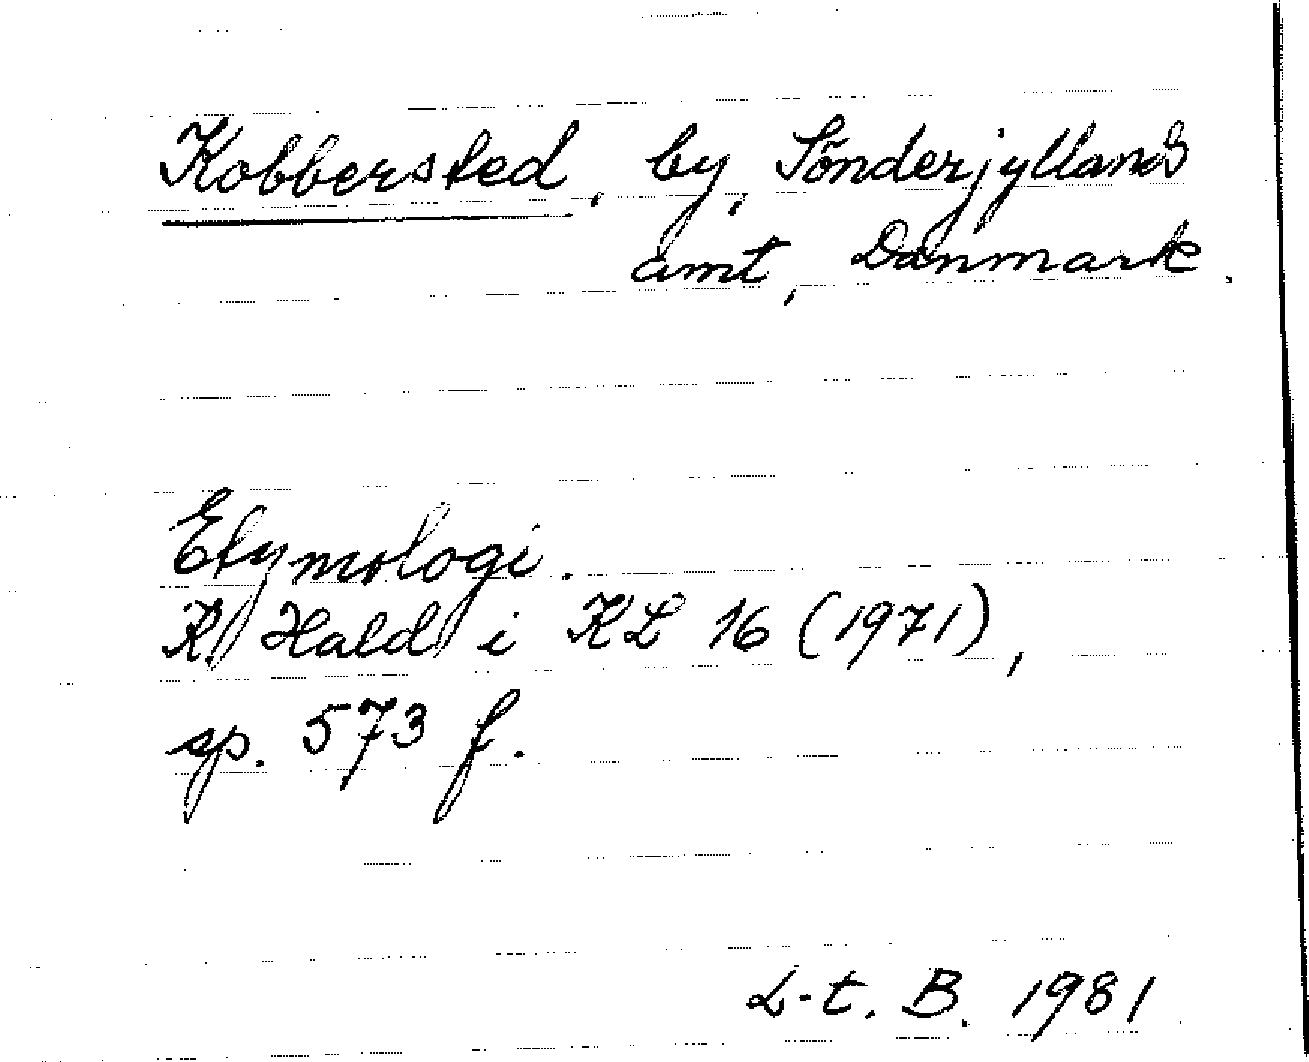 Kobbersted, by, Sönderjyllands
amt, Danmark.
Etymologi.
K. Hald i KL 16 (1971),
sp. 573 f.
L-t. B. 1981